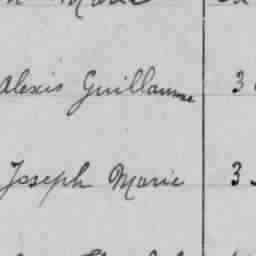 Marie
Alexis Guillaume 3
Joseph Marie 3